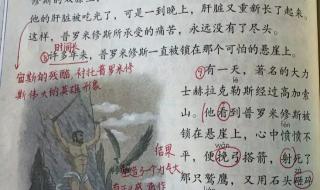 修斯的双膝上
他的肝脏被吃光了,可是一到晚上,肝脏又重新长了起来。
这样,普罗米修斯所承受的痛苦,永远没有了尽头。
时间长
⑧许多年来,普罗米修斯一直被锁在那个可怕的悬崖上。
宙斯的残酷,衬托普罗米修
斯伟大的英雄形象
⑨有一天,著名的大力
士赫拉克勒斯经过高加索
山。他看到普罗米修斯被
锁在悬崖上,心中愤愤不
wǎn
平,便挽弓搭箭,射死了
那只鹫鹰,又用石头砸碎
结果